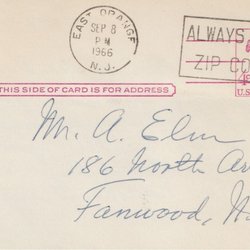 EAST ORANGE
SEP 8
PM
1966
N.J.
ALWAYS
ZIP CO
4¢
U.S
THIS SIDE OF CARD IS FOR ADDRESS
Mr. A. Elm
186 North Av
Fanwood,